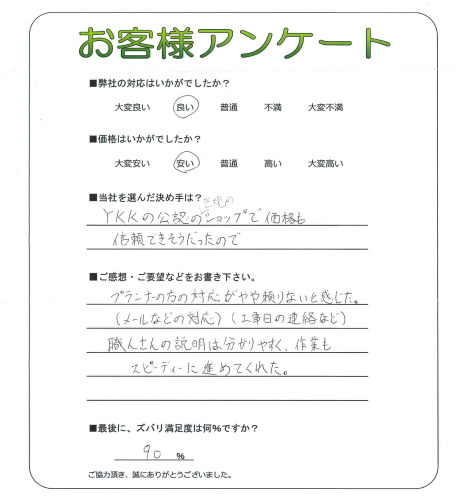 お客様アンケート
■弊社の対応はいかがでしたか？
大変良い 良い 普通 不満 大変不満
■価格はいかがでしたか？
大変安い 安い 普通 高い 大変高い
■当社を選んだ決め手は？
正規の
YKKの公認のショップで価格も
信頼できそうだったので
■ご感想・ご要望などをお書き下さい。
プランナーの方の対応がやや頼りないと感じた。
(メールなどの対応)(工事日の連絡など)
職人さんの説明は分かりやすく、作業も
スピーディーに進めてくれた。
■最後に、ズバリ満足度は何%ですか？
90 %
ご協力頂き、誠にありがとうございました。